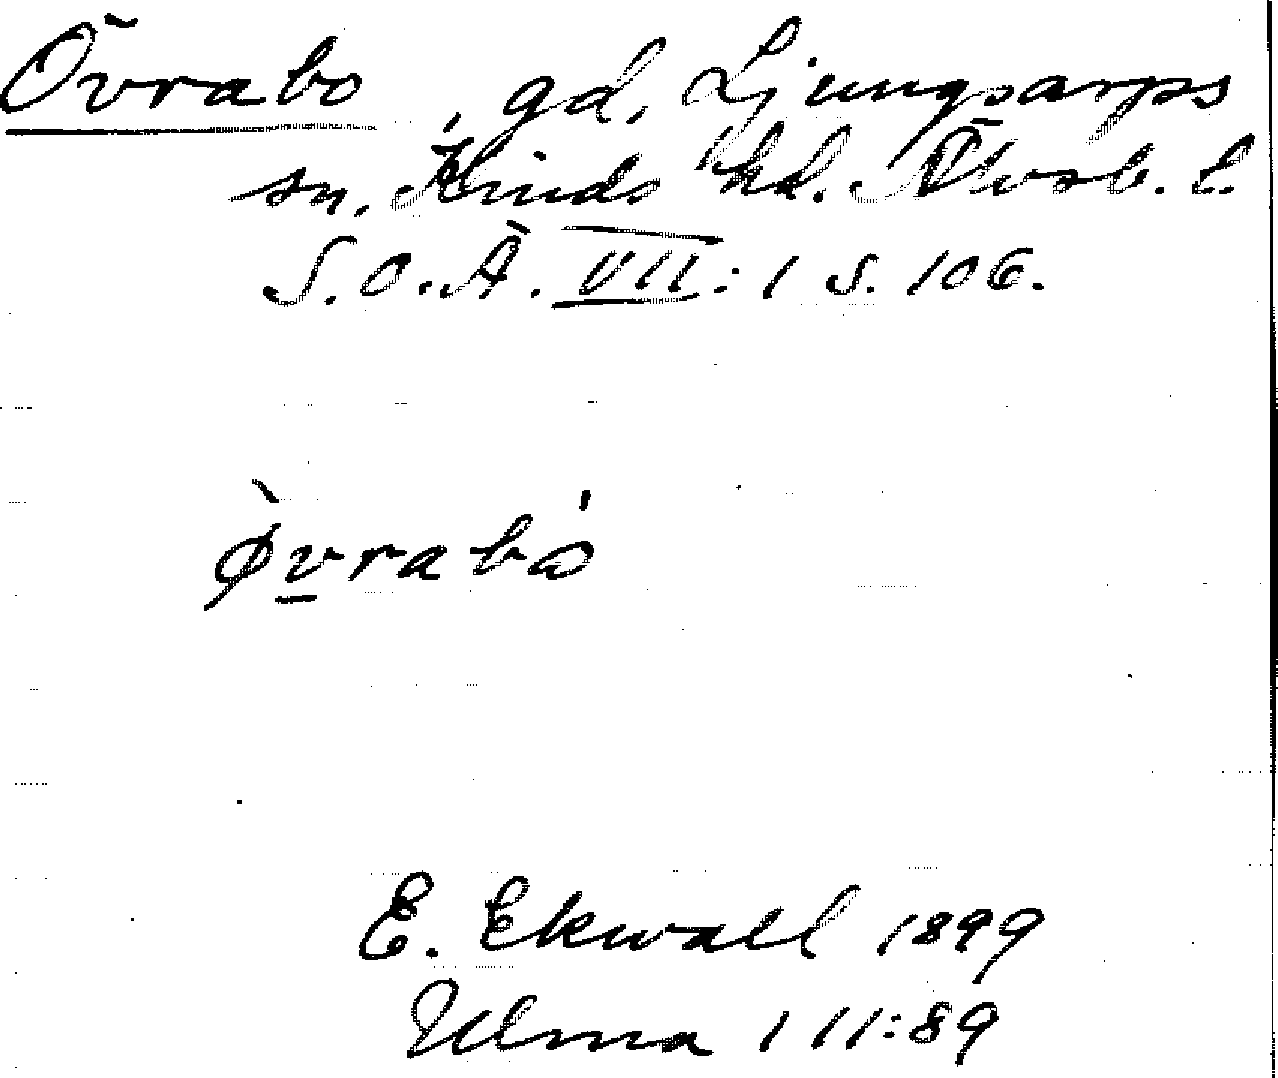 Övrabo, gd, Ljungsarps
sn. Kinds hd. Älvsb. l.
S. O. Ä. VII: 1 s. 106.
ø̀vrabω̍
E. Ekwall 1899
Ulma 111:89